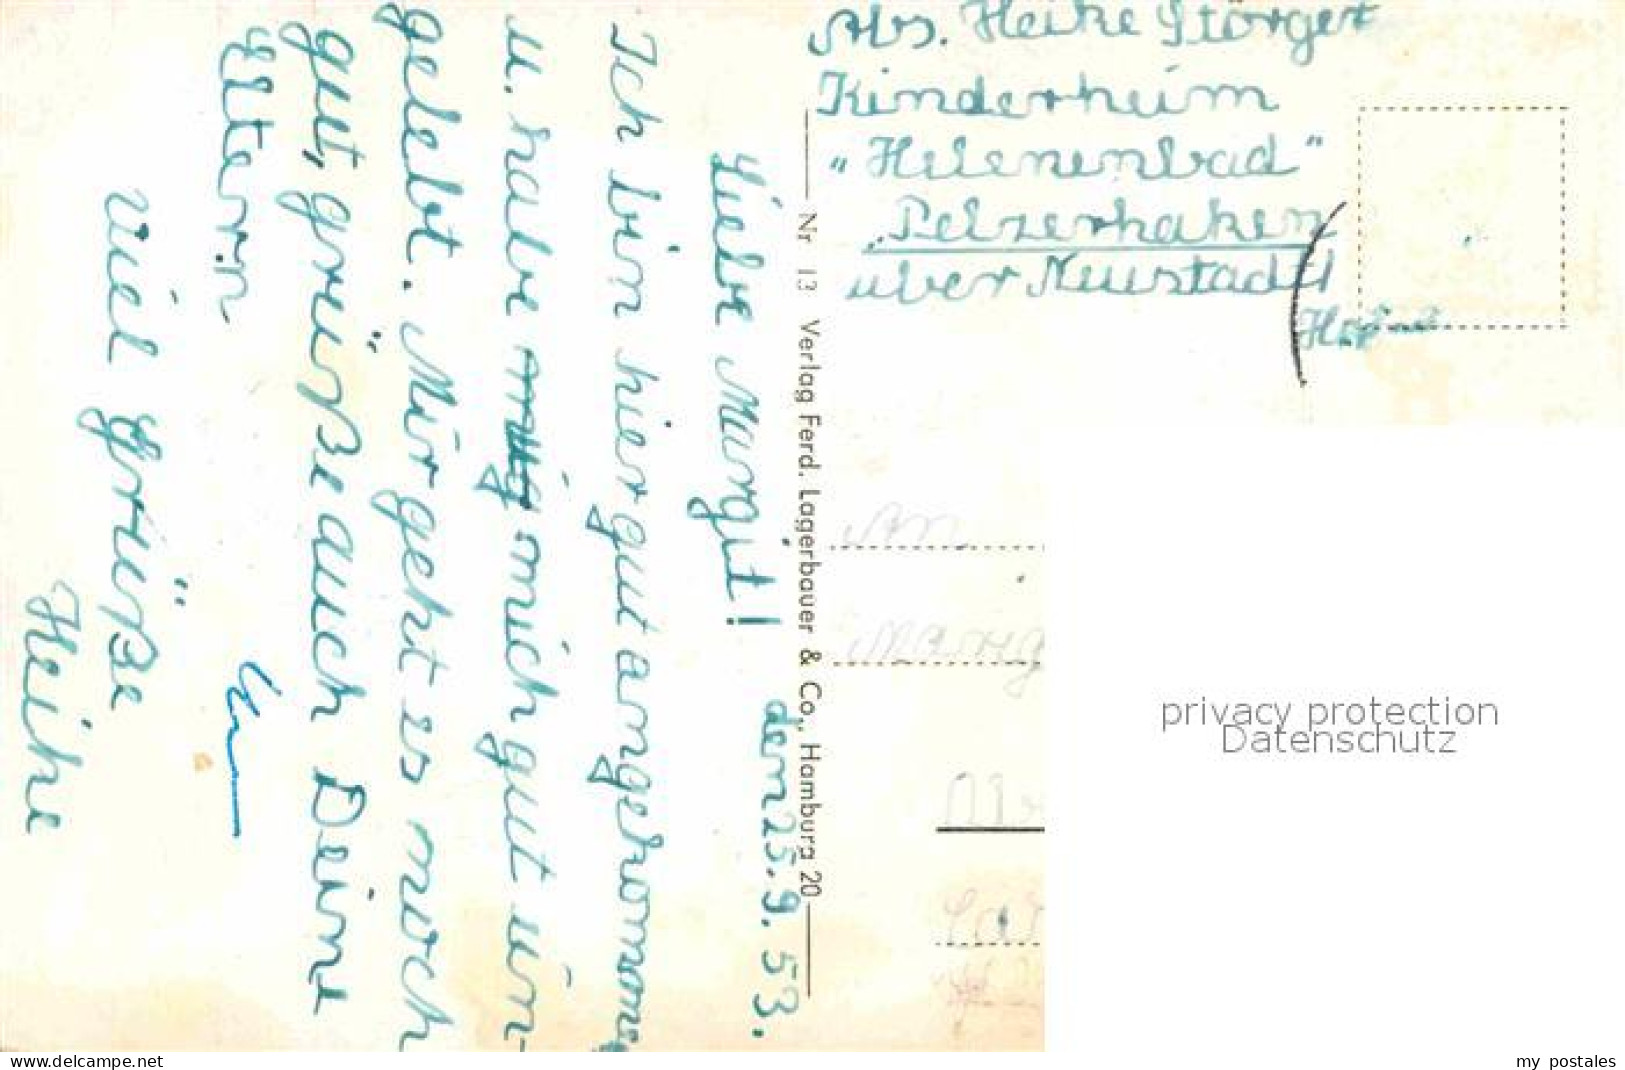 Abs. Heike Störger
Kinderheim
"Helenenbad"
Pelzerhaken
über Neustadt
den 25.9.53.
Liebe Margit!
Ich bin hier gut angekommen
u. habe mich gut ein-
gelebt. Mir geht es noch
gut, grüße auch Deine
Eltern
viel Grüße
Heike
Nr 13 Verlag Ferd. Lagerbauer & Co., Hamburg 20
An
Marg
privacy protection
Datenschutz
www.delcampe.net
my postales